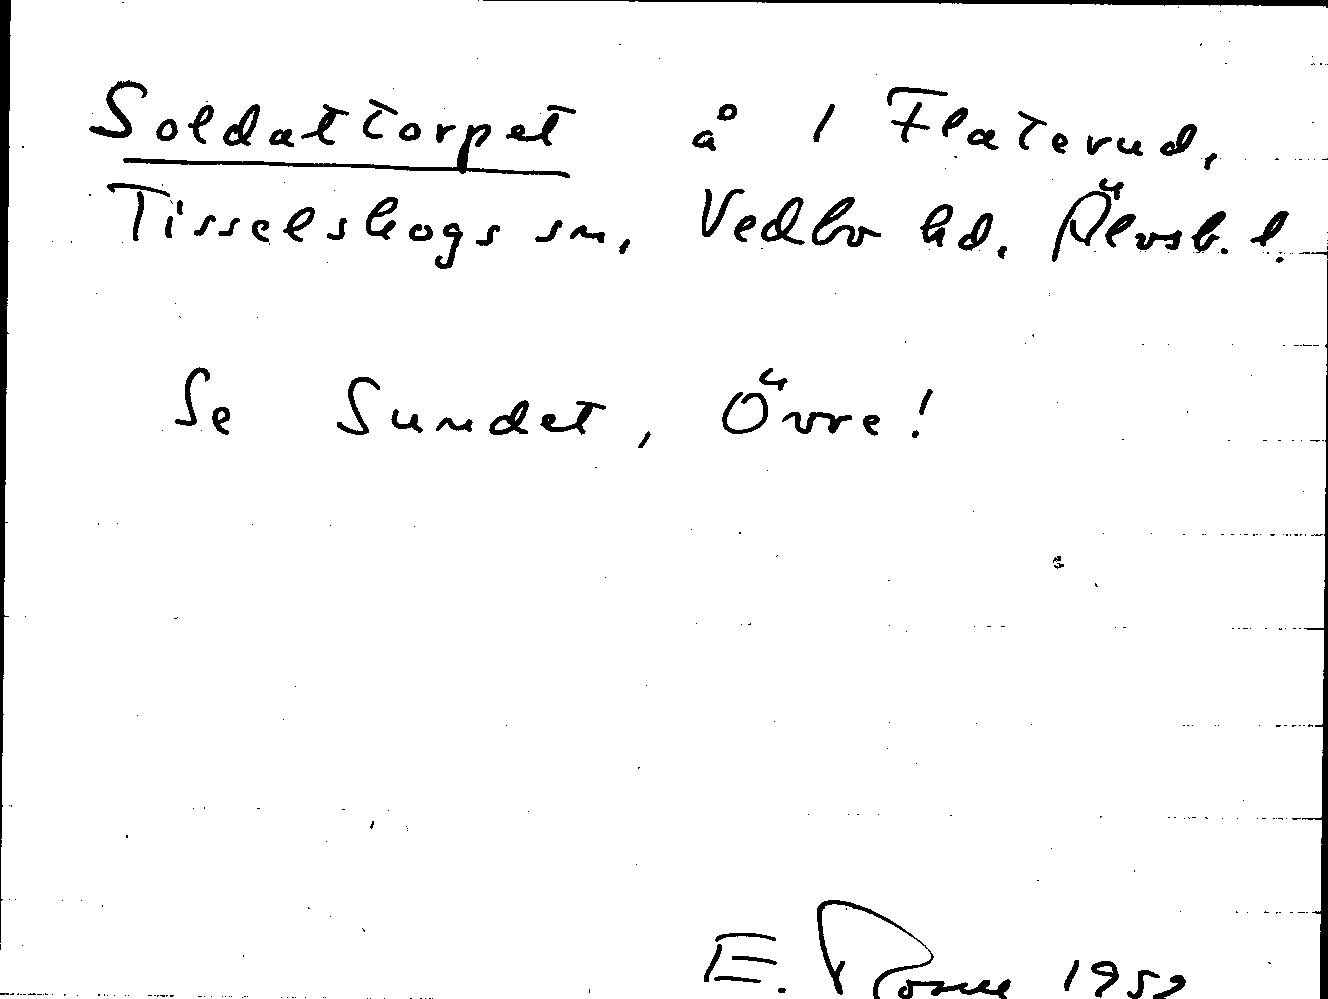 Soldattorpet å 1 Flaterud,
Tisselskogs sn, Vedbo hd. Älvsb. l.
Se Sundet, Övre!
E. 1952